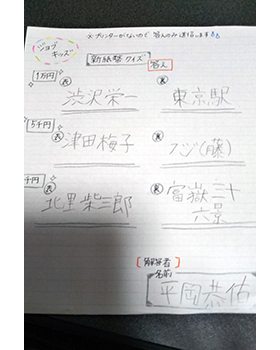 ※プリンターがないので 答えのみ送信します
ジョブキッズ
新紙幣クイズ 答え
1万円 表 渋沢栄一 裏 東京駅
5千円 表 津田梅子 裏 フジ(藤)
千円 表 北里柴三郎 裏 富嶽三十
六景
【解答者】
名前
平岡恭佑